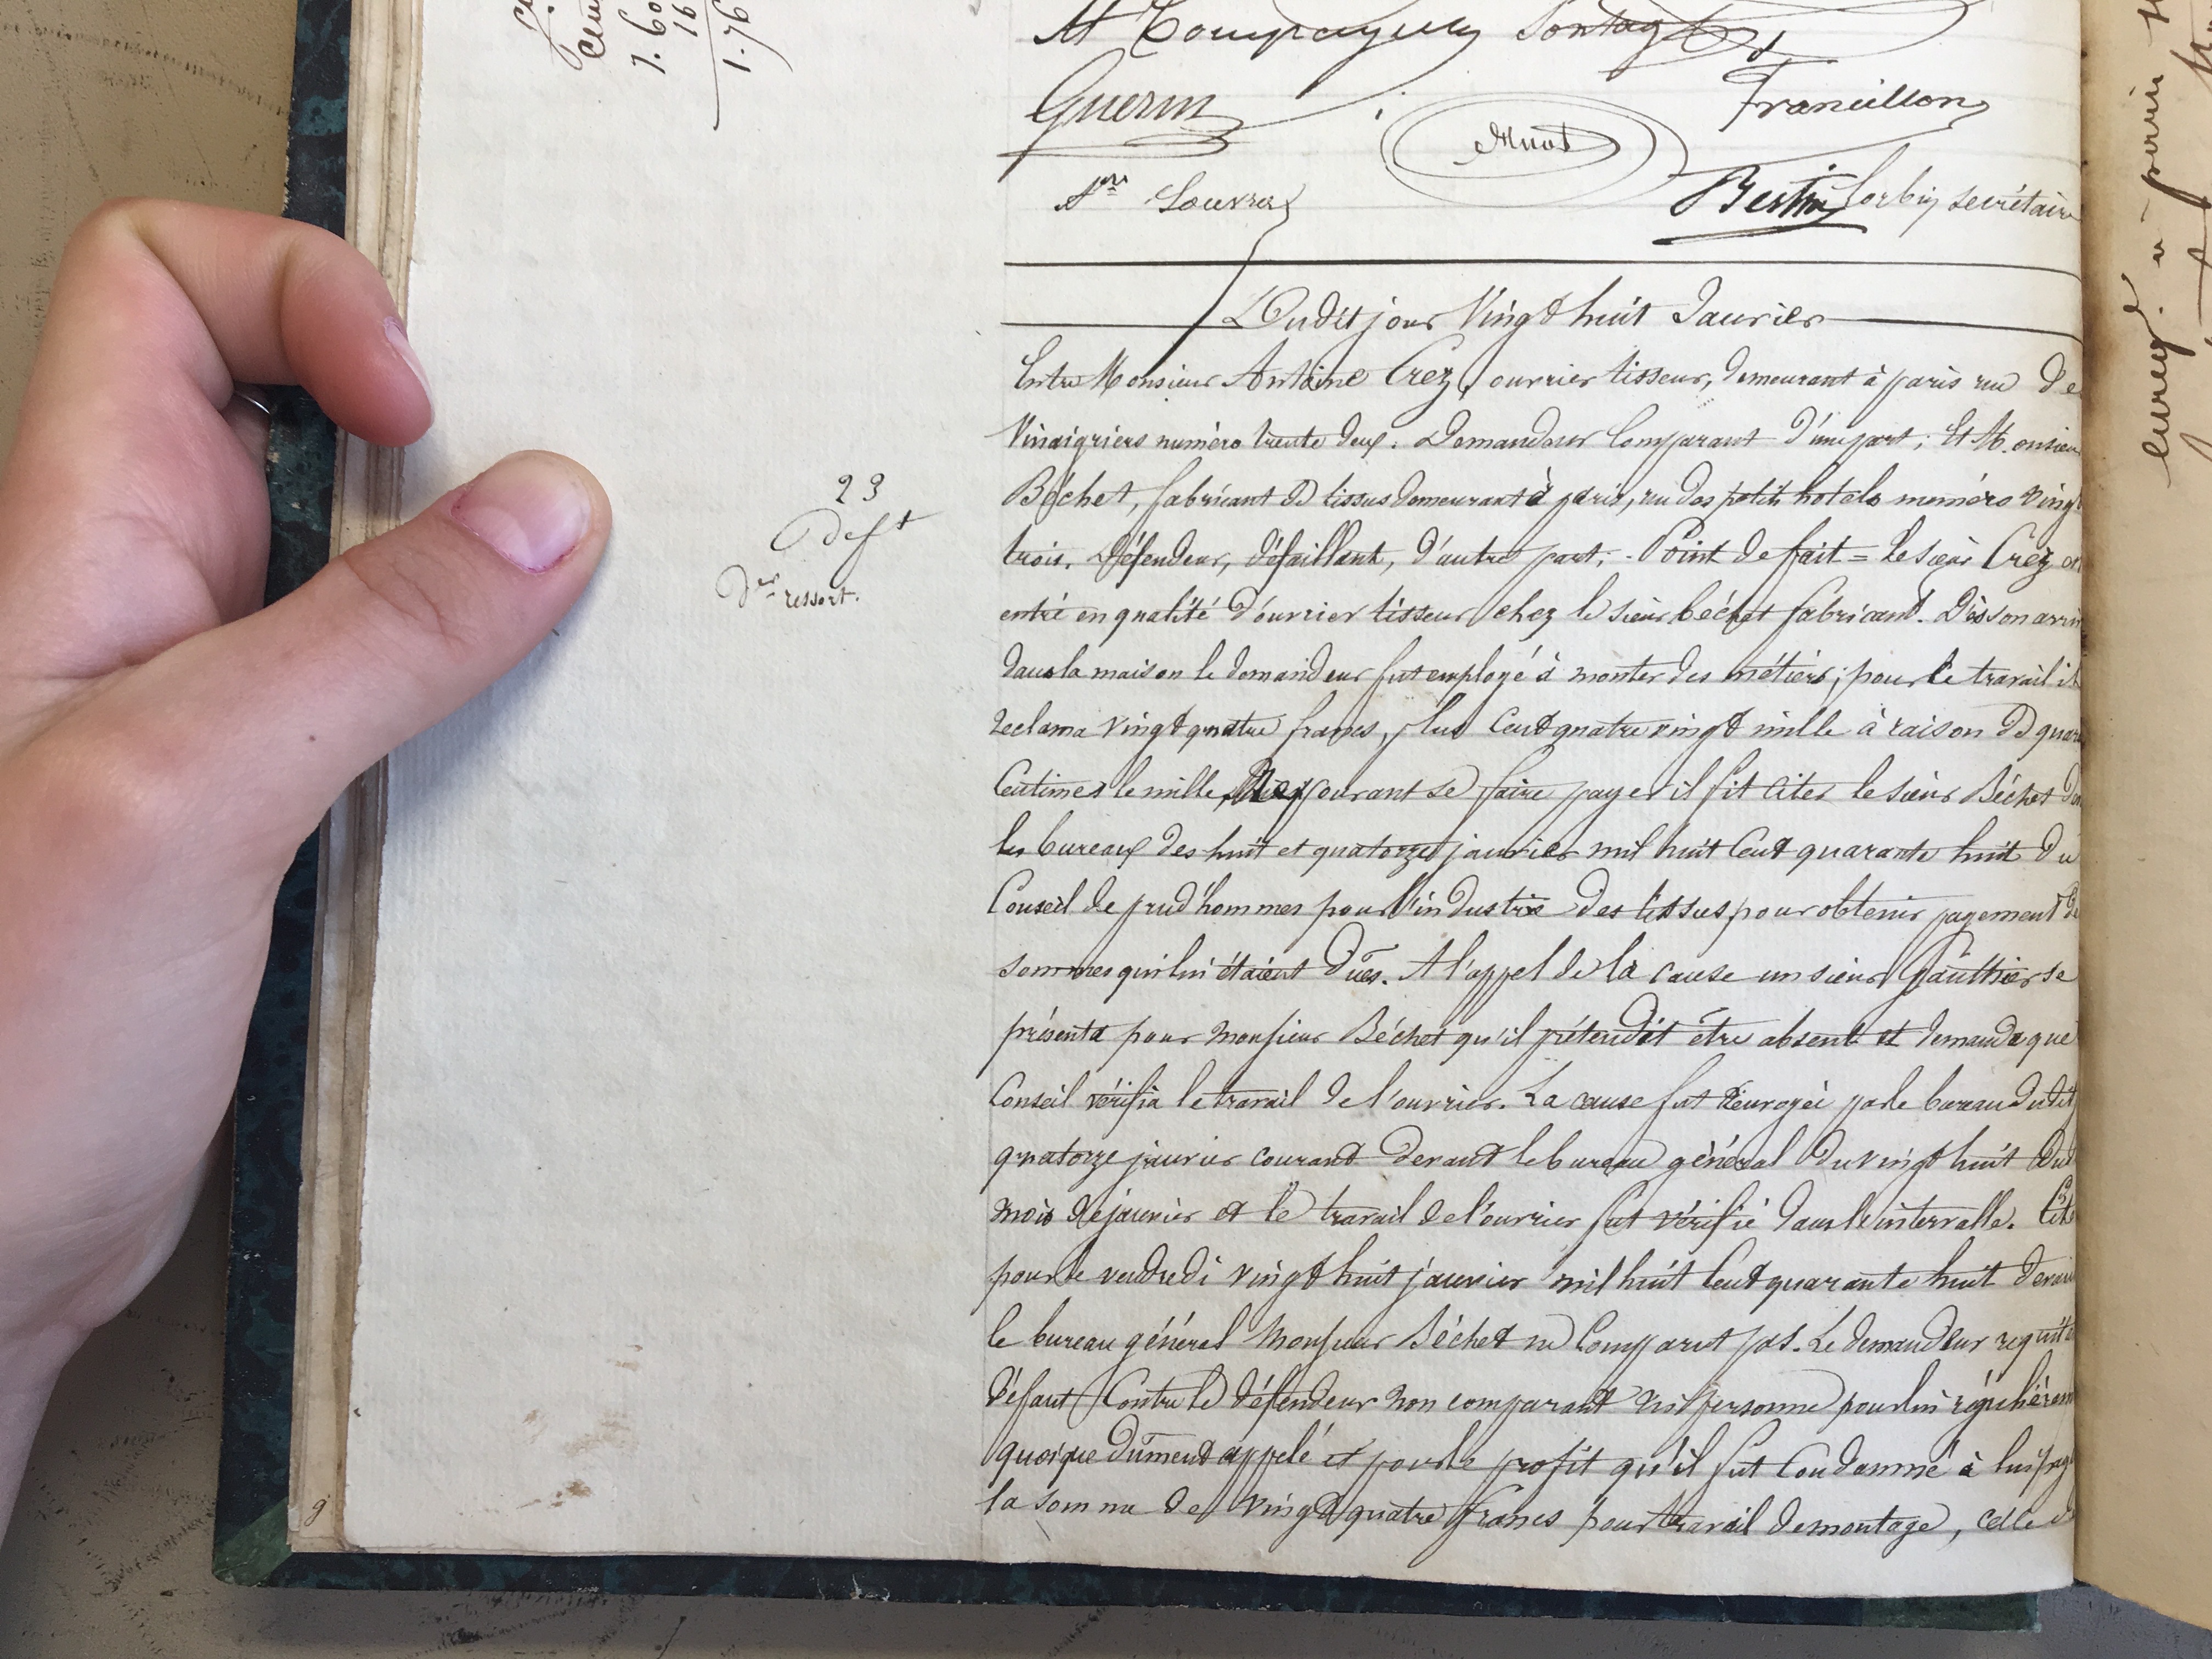 1.60
16
1.76
Guerin
Francillon
Bertin Corbin secrétaire
Dudit jour Vingt huit Janvier
Entre Monsieur Antoine Crez, ouvrier tisseur, demeurant à paris rue de
Vinaigriers numéro trente deux. Demandeur Comparant d'une part; Et Monsieur
23
Béchet, fabricant de tissus demeurant à paris, rue des petits hotels numéro vingt
Deft
trois. Défendeur, défaillant, d'autre part; - Point de fait = Le sieur Crez
Der ressort.
entré en qualité d'ouvrier tisseur chez le sieur béchet fabricant. Dès son
dans la maison le demandeur fut employé à monter des métiers; pour ce travail il
reclama vingt quatre francs, plus Cent quatre vingt mille à raison de
Centimes le mille, Ne pouvant se faire payer il fit citer le sieur Béchet
les bureaux des huit et quatorze janvier mil huit Cent quarante huit du
Conseil de prud'hommes pour l'industrie des tissus pour obtenir payement de
sommes qui lui étaient dues. A l'appel de la cause un sieur Gauthier se
présenta pour Monsieur Béchet qu'il prétendit être absent et demanda que
Conseil vérifia le travail de l'ouvrier. La cause fut renvoyée par le bureau dudit
quatorze janvier courant devant le bureau général du vingt huit dud
mois de janvier et le travail de l'ouvrier fut vérifié dans le intervalle. Cité
pour le vendredi vingt huit janvier mil huit Cent quarante huit devant
le bureau général Monsieur Béchet ne Comparut pas. Le demandeur requit
défaut Contre le défendeur non comparant ni personne pour lui
quoique dument appelé et pour le profit qu'il fut Condamné à lui
la somme de Vingt quatre francs pour travail de montage, celle